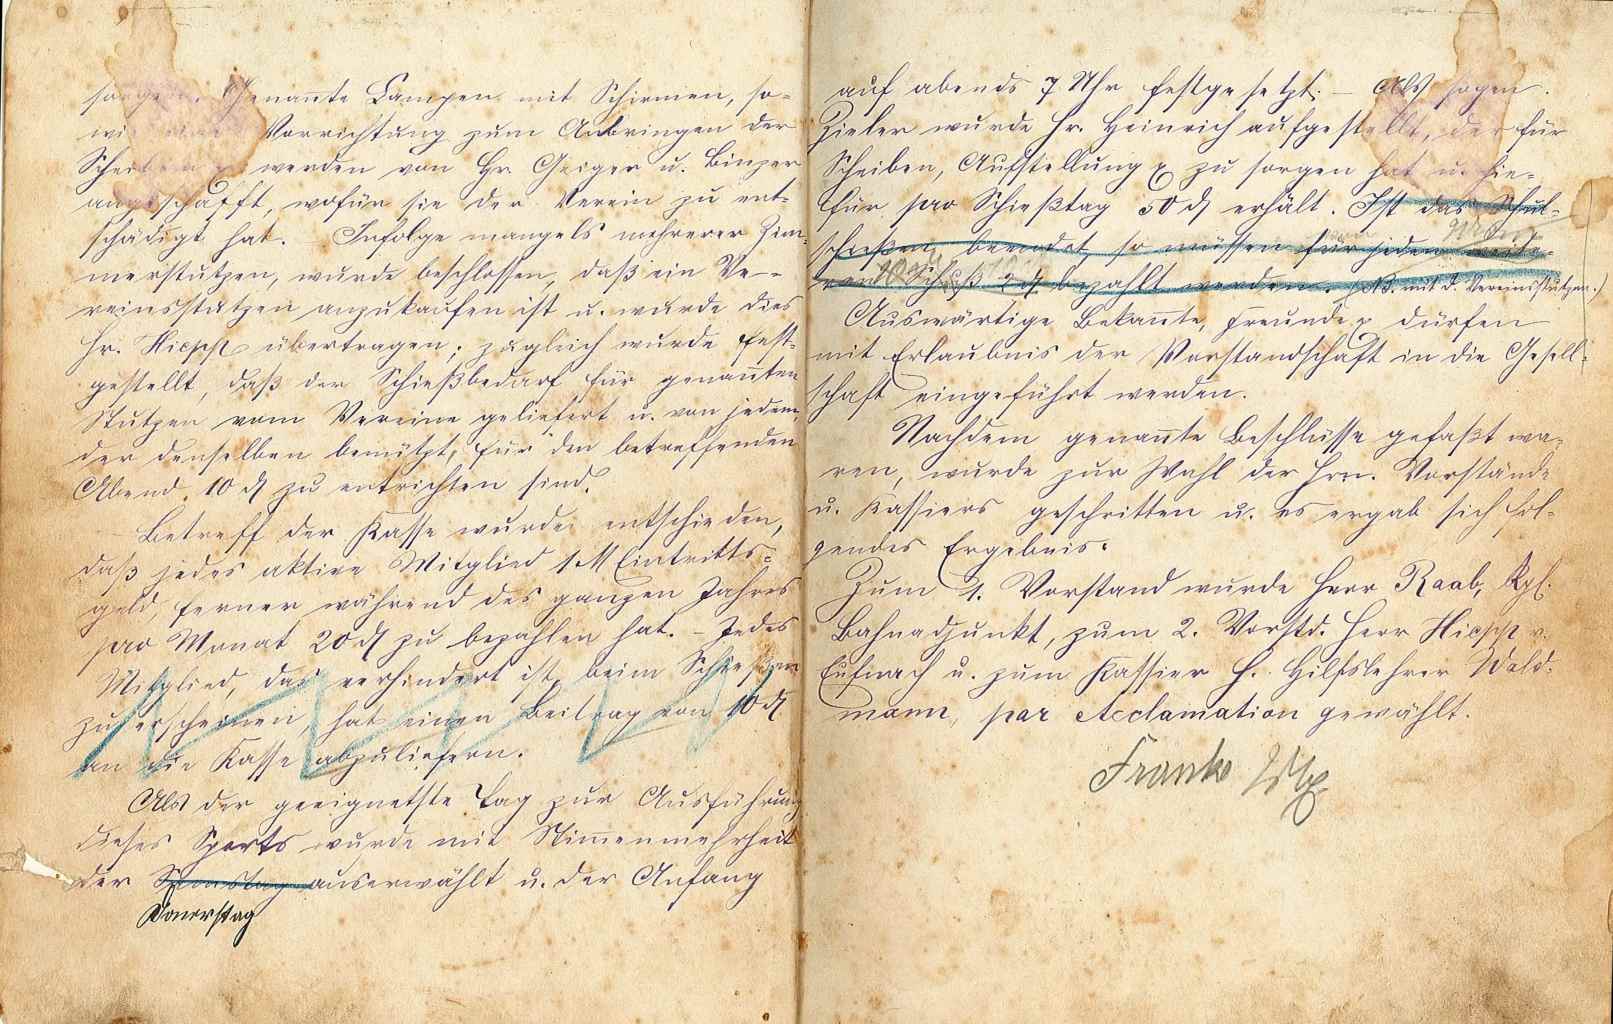 sorgen. Genañte Lampen mit Schirmen, so-
wie eine Vorrichtung zum Anbringen der
Scheiben werden von Hr. Geiger u. Binzer
angeschafft, wofür sie der Verein zu ent-
schädigt hat. – Infolge mangels mehrerer Zim-
merstutzen, wurde beschlossen, daß ein Ve-
reinsstutzen anzukaufen ist u. wurde dies
Hr. Hiepp übertragen; zugleich wurde fest-
gestellt, daß der Schießbedarf für genañten
Stutzen vom Vereine geliefert u. von jedem,
der denselben benützt, für den betreffenden
Abend 10 ₰ zu entrichten sind.
Betreff der Kasse wurde entschieden,
daß jedes aktive Mitglied 1 M Eintritts-
geld ferner während des ganzen Jahres
pro Monat 20 ₰ zu bezahlen hat. – Jedes
Mitglied, das verhindert ist, beim Schießen
zu erscheinen, hat einen Beitrag von 10 ₰
an die Kasse abzuliefern.
Als der geeignetste Tag zur Ausführung
dieses Sports wurde mit Stim̄enmehrheit
der Samstag auserwählt u. der Anfang
Don̄erstag
auf abends 7 Uhr festgesetzt. – Als sogen.
Zieler wurde Hr. Heinrich aufgestellt, der für
Scheiben, Aufstellung zu sorgen hat u. hie-
für pro Schießtag 50 ₰ erhält. Ist das Schul-
schießen beendet, so müssen für jeden weite-
ren Schuß 2 ₰ bezahlt werden. (NB. mit d. Vereinsstutzen.)
Auswärtige Bekañte, Freunde dürfen
mit Erlaubnis der Vorstandschaft in die Gesell-
schaft eingeführt werden.
Nachdem genañte Beschlüsse gefaßt wa-
ren, wurde zur Wahl der Hrn. Vorstände
u. Kassiers geschritten u. es ergab sich fol-
gendes Ergebnis:
Zum 1. Vorstand wurde Herr Raab, Kgl.
Bahnadjunkt, zum 2. Vorstd. Herr Hiepp v.
u. zum Kassier H. Hilfslehrer Wald-
mann, par Acclamation gewählt.
Frank